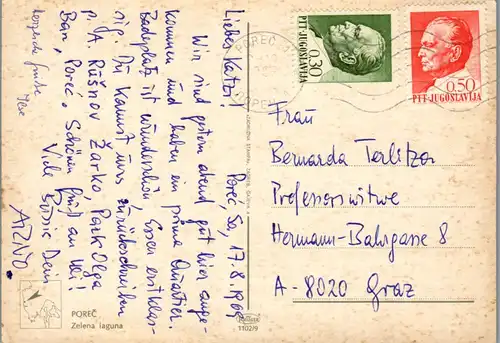 Poreč, Sa, 17.8.1968
Lieber Katzo!
Wir sind gestern abend gut hier ange-
kommen und haben ein prima Quartier.
Badeplatz ist wunderschön. Essen erstklas-
sig. Du kannst uns zurückschreiben
p. A. Rušnov Žarko, Park Olga
Ban, Poreč. Schönen Gruß an
Viele Bussis Dein
ARNO
herzliche Grüße
POREČ
Zelena laguna
1102/9
0.30
PTT-JUGOSLAVIJA
0.50
PTT-JUGOSLAVIJA
Frau
Bernarda Terlitza
Professorswitwe
Hermann-Bahrgasse 8
A-8020 Graz